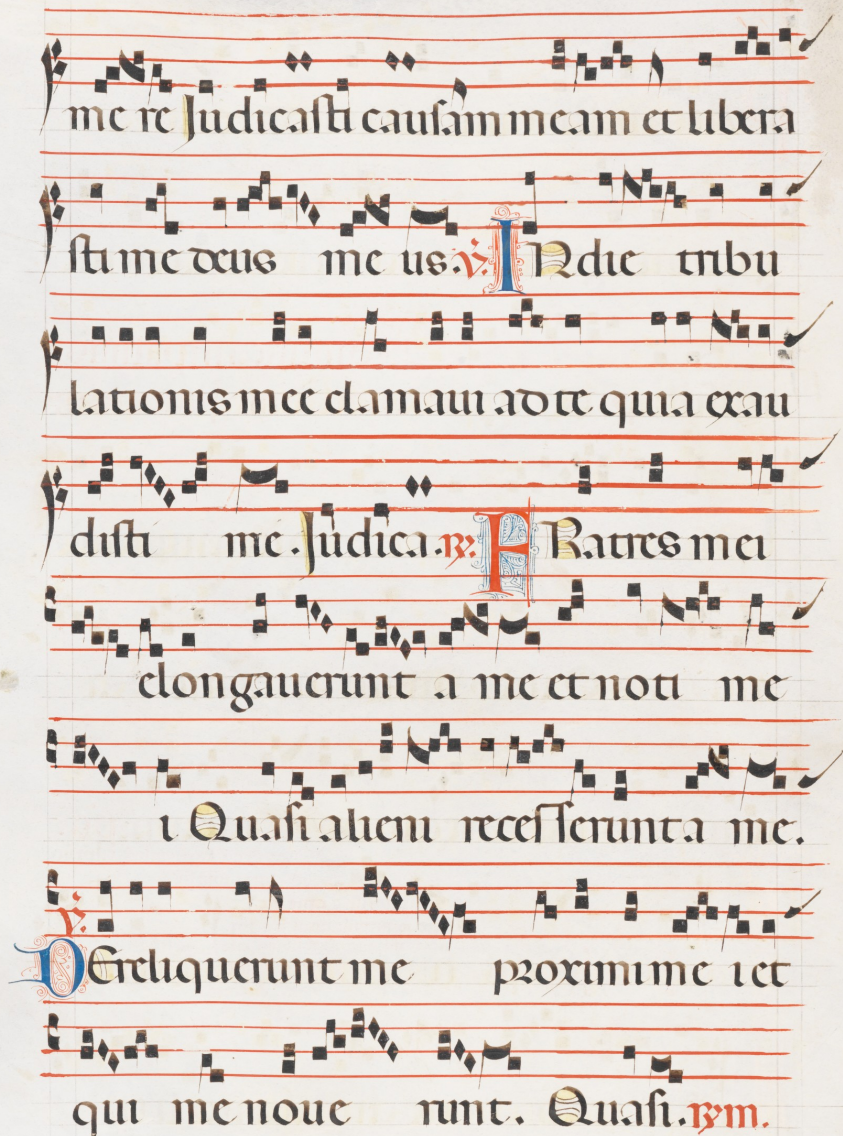 me re Judicasti causam meam et libera
sti me deus me us. ℣. INdie tribu
lationis mee clamaui ad te quia exau
disti me. Judica. ℟: FRatres mei
elongauerunt a me et noti me
i Quasi alieni recesserunt a me.
℣. DEreliquerunt me proximi me i et
qui me noue runt. Quasi. ℟m.